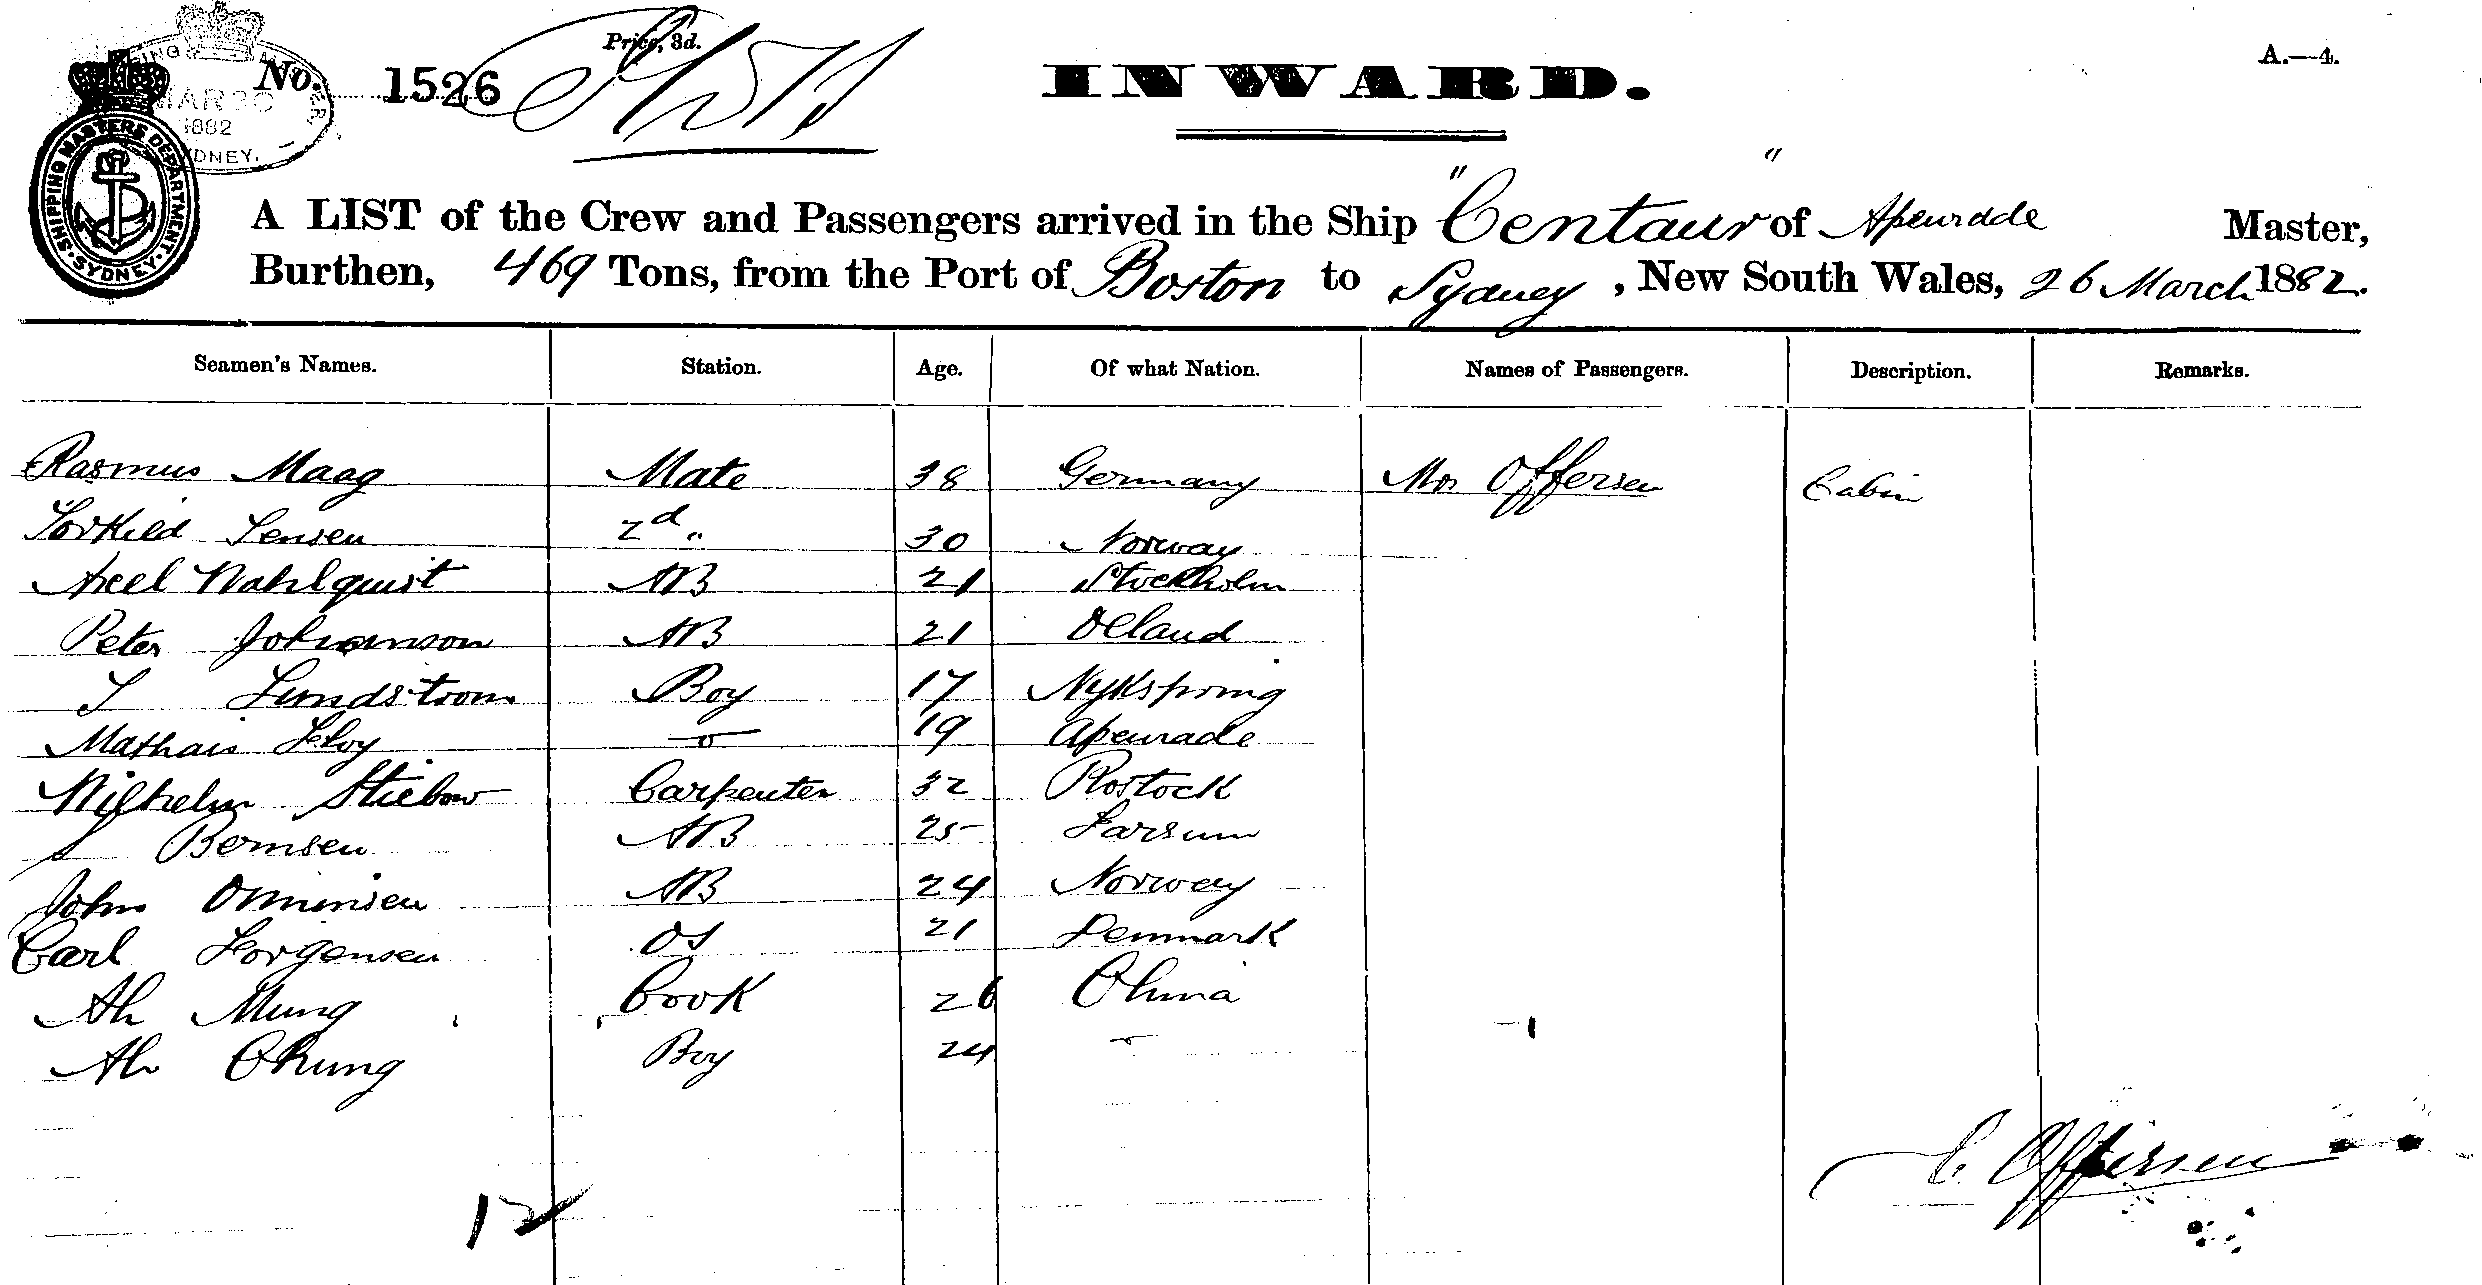 No. 1526
Price, 3d.
INWARD.
A.—4.
MAR 30
1882
SYDNEY.
SHIPPING MASTERS DEPARTMENT
SYDNEY
A LIST of the Crew and Passengers arrived in the Ship "Centaur" of Apenrade Master,
Burthen, 469 Tons, from the Port of Boston to Sydney, New South Wales, 26 March 1882.
Seamen's Names. Station. Age. Of what Nation. Names of Passengers. Description. Remarks.
Rasmus Maag Mate 38 Germany Mrs Offersen Cabin
Torkild Jensen 2d " 30 Norway
Axel Wahlquist AB 21 Stockholm
Peter Johanson AB 21 Oeland
J Lundstrom Boy 17 Nykspring
Mathais 19 Apenrade
Wilhelm Stiebow Carpenter 32 Rostock
Bernsen AB 25 Farsum
John Ommensen AB 24 Norway
Carl Jorgensen OS 21 Denmark
Ah Mung Cook 26 China
Ah Chung Boy 24
C. Offersen
12